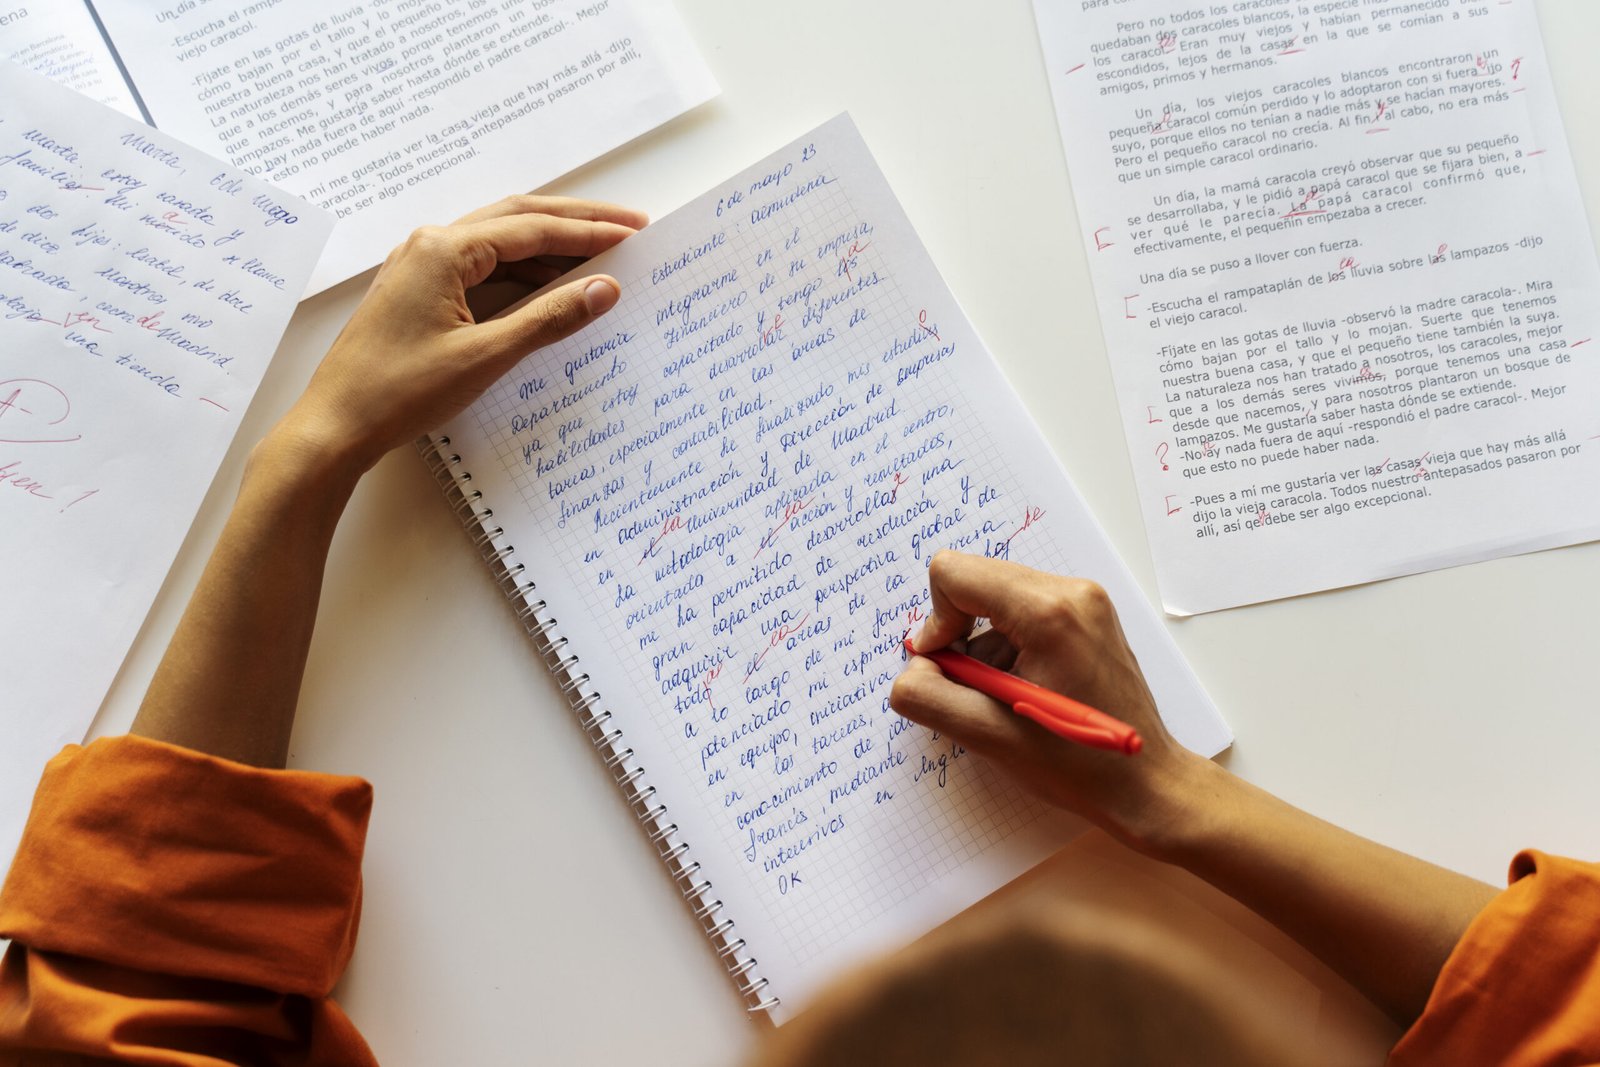 ena
en Barcelona
Un día se
-Escucha el rampata
viejo caracol.
-Fíjate en las gotas de lluvia -ob
cómo bajan por el tallo y lo moja
nuestra buena casa, y que el pequeño
La naturaleza nos han tratado a nosotros, los
que a los demás seres vivos, porque tenemos una
que nacemos, y para nosotros plantaron un bos
lampazos. Me gustaría saber hasta dónde se extiende.
No hay nada fuera de aquí -respondió el padre caracol-. Mejor
esto no puede haber nada.
a mí me gustaría ver la casa vieja que hay más allá -dijo
caracola-. Todos nuestros antepasados pasaron por allí,
be ser algo excepcional.
Marta, 6 de Mayo
Marta. estoy casada y
familia. Mi marido se llama
a
dos hijos: Isabel, de doce
de diez
nosotros vivo
de Madrid.
en una tienda
A-
en!
6 de mayo 23
Estudiante: Almudena
Me gustaría integrarme en el
Departamento Financiero de su empresa,
ya que estoy capacitado y tengo las
habilidades para desarrollar diferentes
tareas, especialmente en las áreas de
finanzas y contabilidad.
Recientemente he finalizado mis estudios
en administración y Dirección de Empresas
en el la Universidad de Madrid.
La metodología aplicada en el centro,
orientado a el la acción y resultados,
me ha permitido desarrollar una
gran capacidad de resolución y
adquirir una perspectiva global de
todo el la áreas de la empresa.
a lo largo de mi formac he
potenciado mi espiritu
en equipo, iniciativa
en las tareas, a
conocimiento de idi
francés, mediante
intensivos en Inglа
OK
para con
Pero no todos los caracoles blancos, la especie más
quedaban dos caracoles blancos, y habían permanecido bien
los caracol. Eran muy viejos y
escondidos, lejos de la casas en la que se comían a sus
amigos, primos y hermanos.
Un día, los viejos caracoles blancos encontraron un
pequeña caracol común perdido y lo adoptaron con si fuera ijo
suyo, porque ellos no tenían a nadie más y se hacían mayores.
Pero el pequeño caracol no crecía. Al fin y al cabo, no era más
que un simple caracol ordinario.
Un día, la mamá caracola creyó observar que su pequeño
se desarrollaba, y le pidió a papá caracol que se fijara bien, a
ver qué le parecía. La papá caracol confirmó que,
efectivamente, el pequeñín empezaba a crecer.
Una día se puso a llover con fuerza.
-Escucha el rampataplán de los lluvia sobre las lampazos -dijo
el viejo caracol.
-Fíjate en las gotas de lluvia -observó la madre caracola-. Mira
cómo bajan por el tallo y lo mojan. Suerte que tenemos
nuestra buena casa, y que el pequeño tiene también la suya.
La naturaleza nos han tratado a nosotros, los caracoles, mejor
que a los demás seres vivimos, porque tenemos una casa
desde que nacemos, y para nosotros plantaron un bosque de
lampazos. Me gustaría saber hasta dónde se extiende.
-No ay nada fuera de aquí -respondió el padre caracol-. Mejor
que esto no puede haber nada.
-Pues a mí me gustaría ver las casas vieja que hay más allá
dijo la vieja caracola. Todos nuestro antepasados pasaron por
allí, así qe debe ser algo excepcional.